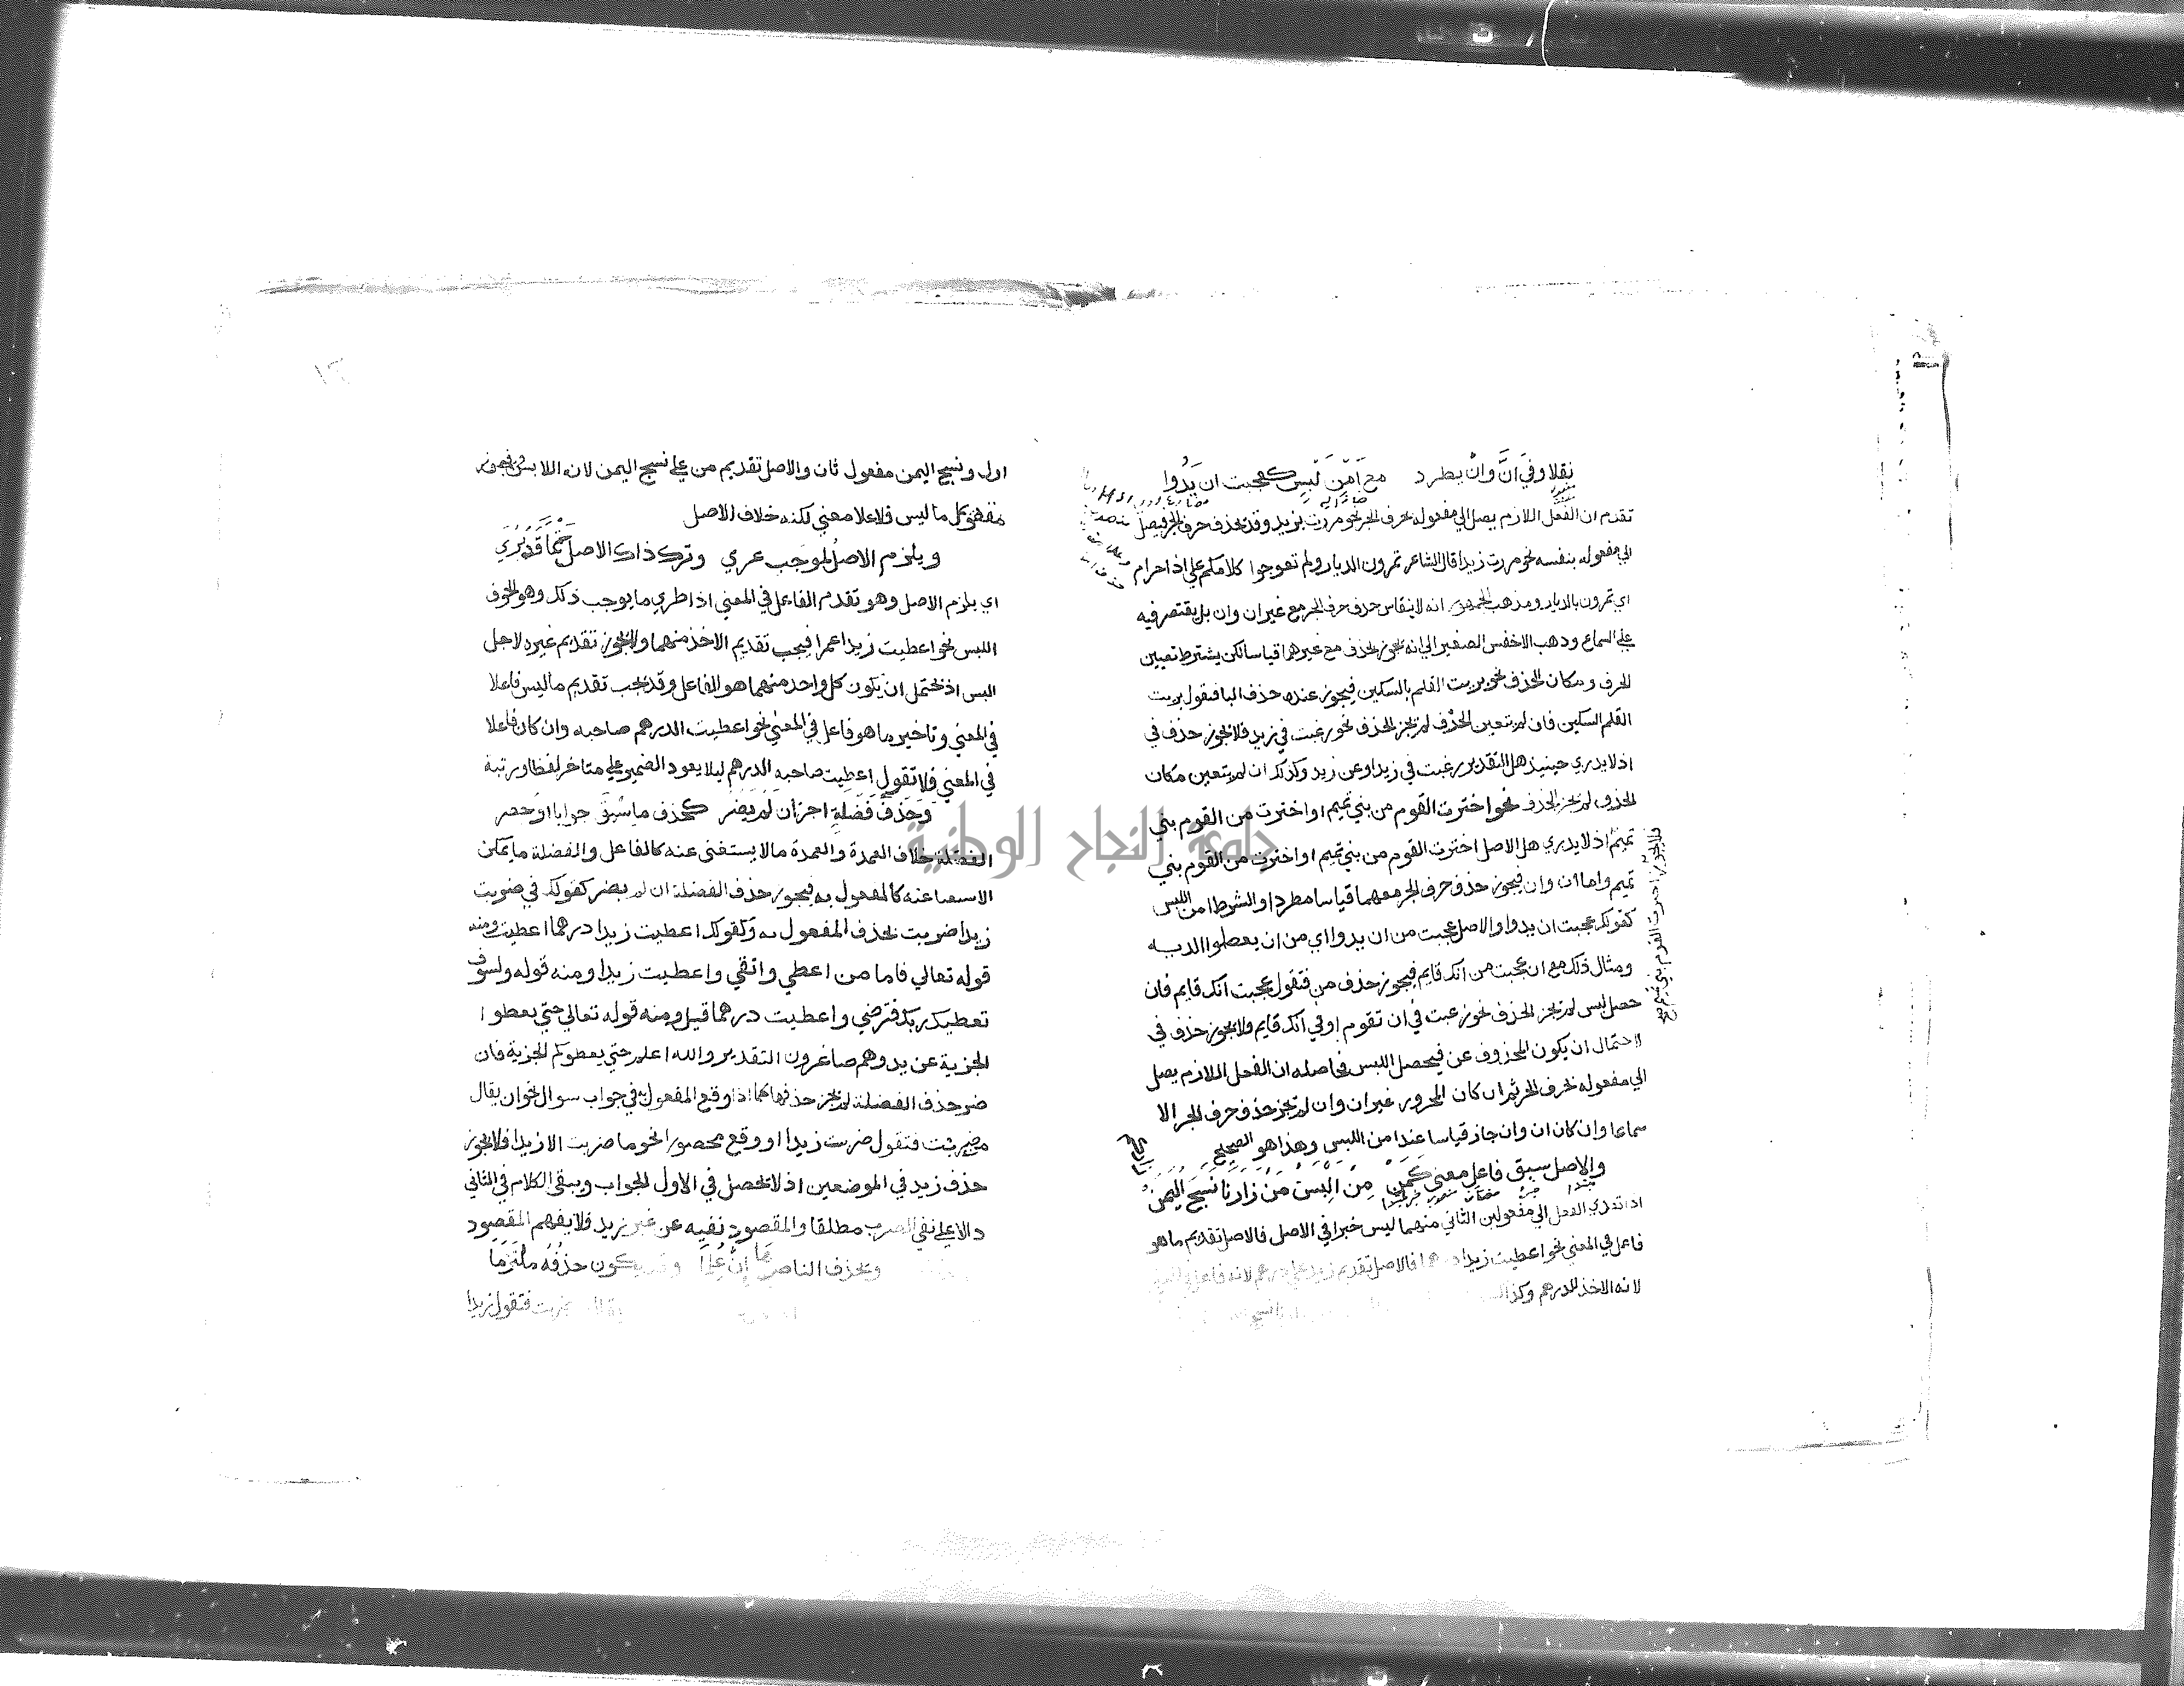 نقلا وفي انَّ وانْ يطرد مع امن لبس كعجبت ان يدوا
تقدم ان الفعل اللازم يصل الي مفعوله بحرف الجر نحو مررت بزيد وقد يحذف حرف الجر فيصل
الي مفعوله بنفسه نحو مررت زيدا قال الشاعر تمرون الديار ولم تعوجوا كلامكم علي اذا حرام
اي تمرون بالديار ومذهب الجمهور انه لا ينقاس حذف حرف الجر مع غير ان وان بل يقتصر فيه
علي السماع وذهب الاخفش الصغير الي انه يجوز الحذف مع غيرهما قياسا لكن بشترط تعيين
الحرف ومكان الحذف نحو بريت القلم بالسكين فيجوز عنده حذف البا فتقول بريت
القلم السكين فان لم يتعين الحذف لم يجز الحذف نحو رغبت في زيد فلا يجوز حذف في
اذ لا يدري حينيذ هل التقدير رغبت في زيد او عن زيد وكذلك ان لم يتعين مكان
الحذف لم يجز الحذف نحو اخترت القوم من بني تميم او اخترت من القوم بني
تميم اذ لا يدري هل الاصل اخترت القوم من بني تميم او اخترت من القوم بني
تميم واما ان وان فيجوز حذف حرف الجر معهما قياسا مطردا والشرط امن اللبس
كقولك عجبت ان يدوا والاصل عجبت من ان يدوا اي من ان يعطوا الديه
ومثال ذلك مع ان عجبت من انك قايم فيجوز حذف من فتقول عجبت انك قايم فان
حصل لبس لم يجز الحذف نحو رغبت في ان تقوم او في انك قايم فلا يجوز حذف في
لاحتمال ان يكون المحذوف عن فيحصل اللبس فحاصله ان الفعل اللازم يصل
الي مفعوله بحرف الجر ثم ان كان المجرور غير ان وان لم يجز حذف حرف الجر الا
سماعا وان كان ان وان جاز قياسا عند امن اللبس وهذا هو الصحيح
والاصل سبق فاعل معني كمن من البسن من زارنا نسج اليمن
اذا تعدي الفعل الي مفعولين الثاني منهما ليس خبرا في الاصل فالاصل تقديم ما هو
فاعل في المعني نحو اعطيت زيدا درهما فالاصل تقديم زيد علي درهم لانه فاعل في المعني
لانه الاخذ للدرهم وكذا
اول ونسج اليمن مفعول ثان والاصل تقديم من علي نسج اليمن لانه اللابس
ما ليس فاعلا معني لكنه خلاف الاصل
ويلزم الاصل لموجب عري وترك ذاك الاصل حتما قد يري
اي يلزم الاصل وهو تقدم الفاعل في المعني اذا طري ما يوجب ذلك وهو الخوف
اللبس نحو اعطيت زيدا عمرا فيجب تقديم الاخذ منهما ولا يجوز تقديم غيره لاجل
البس اذ يحتمل ان يكون كل واحد منهما هو الفاعل وقد يجب تقديم ما ليس فاعلا
في المعني وتاخير ما هو فاعل في المعني نحو اعطيت الدرهم صاحبه وان كان فاعلا
في المعني فلا تقول اعطيت صاحبه الدرهم ليلا يعود الضمير علي متاخر لفظا ورتبة
وحذف فضلة اجز ان لم يضر كحذف ما سيق جوابا او حصر
الفضلة خلاف العمدة والعمدة ما لا يستغني عنه كالفاعل والفضلة ما يمكن
الاستغنا عنه كالمفعول به فيجوز حذف الفضلة ان لم يضر كقولك في ضربت
زيدا ضربت بحذف المفعول به وكقولك اعطيت زيدا درهما اعطيت ومنه
قوله تعالي فاما من اعطي واتقي واعطيت زيدا ومنه قوله ولسوف
تعطيك ربك فترضي واعطيت درهما قيل ومنه قوله تعالي حتي يعطوا
الجزية عن يد وهم صاغرون التقدير والله اعلم حتي يعطوكم الجزية فان
ضر حذف الفضلة لم يجز حذفها كما اذا وقع المفعول به في جواب سوال نحو ان يقال
من ضربت فتقول ضربت زيدا او وقع محصورا نحو ما ضربت الا زيدا فلا يجوز
حذف زيد في الموضعين اذ لا يحصل في الاول الجواب ويبقي الكلام في الثاني
دالا علي نفي الضرب مطلقا والمقصود نفيه عن غير زيد فلا يفهم المقصود
ويحذف الناصبها ان علما وقد يكون حذفه ملتزما
ضربت فتقول زيدا
جامعة النجاح الوطنية